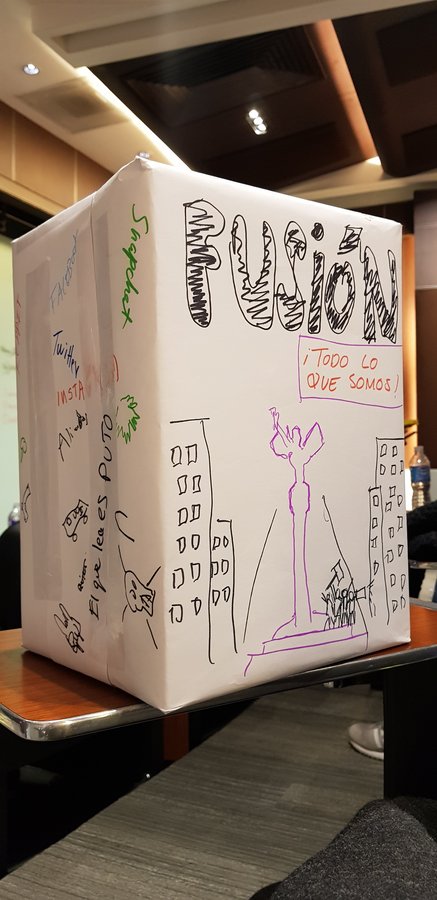 FUSIÓN
¡TODO LO
QUE SOMOS!
Snapchat
FACEBOOK
Twitter
INSTA
El que lea es PUTO